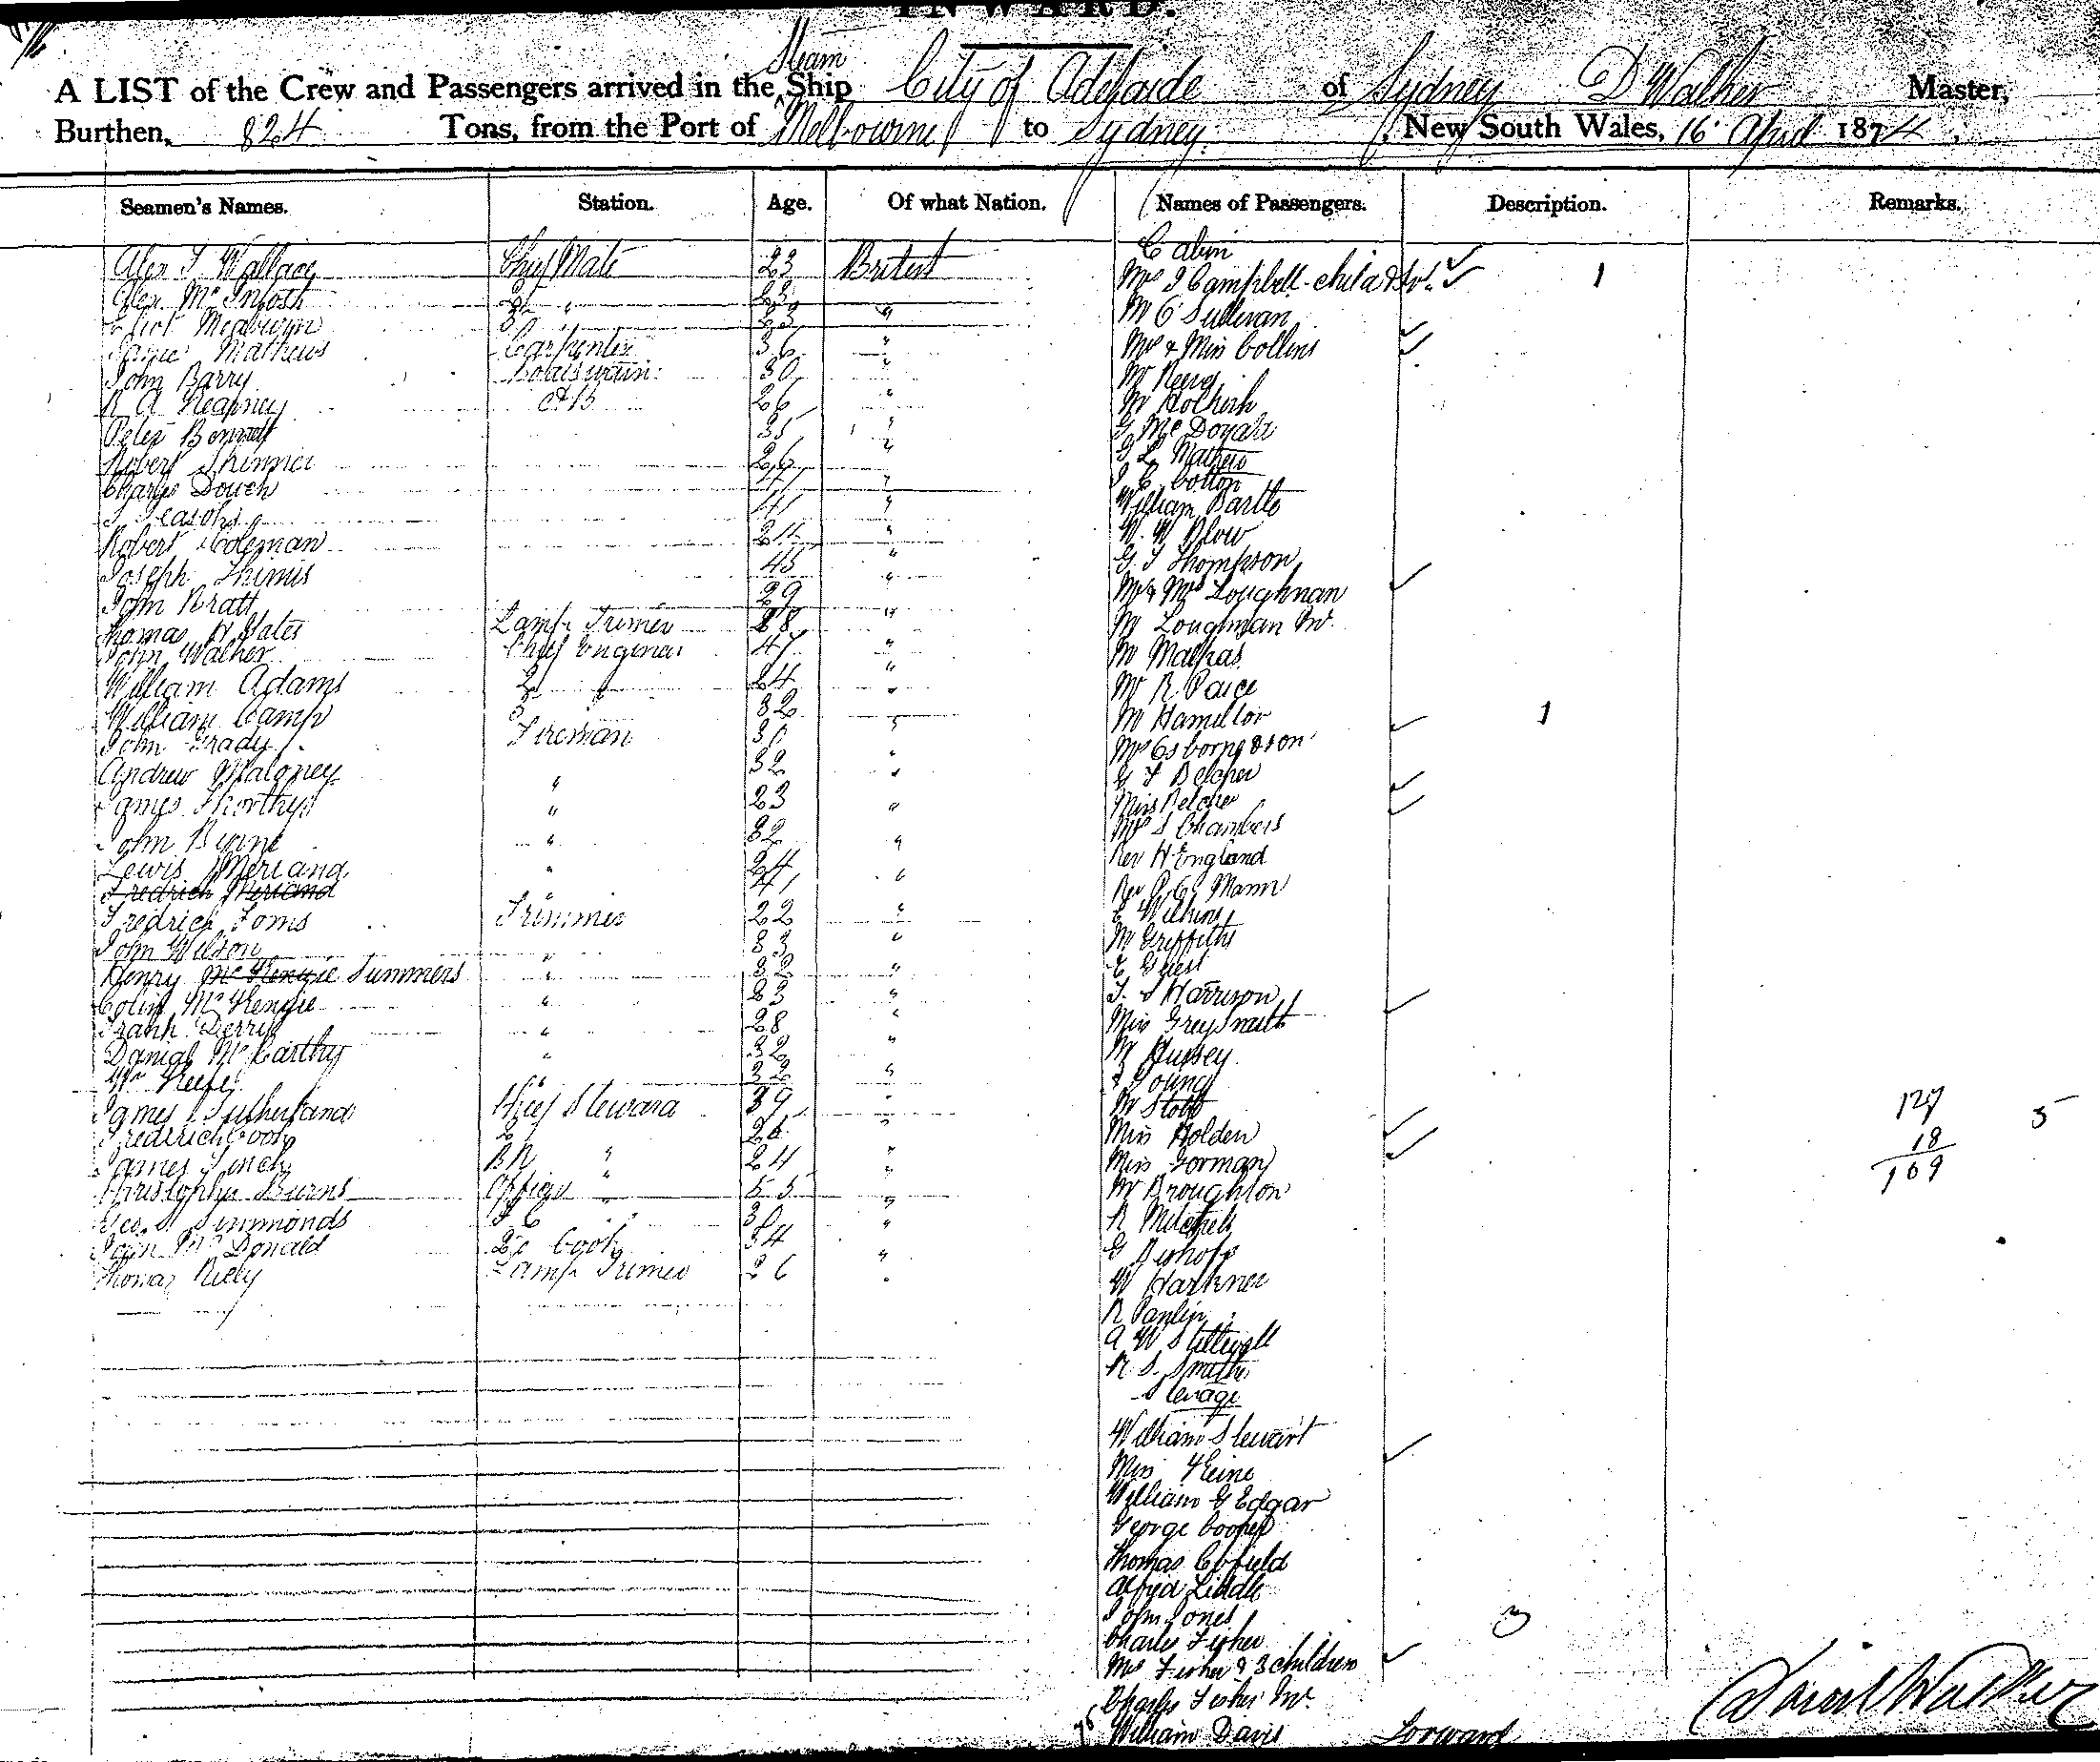 INWARD.
A LIST of the Crew and Passengers arrived in the Steam Ship City of Adelaide of Sydney D Walker Master,
Burthen, 824 Tons, from the Port of Melbourne to Sydney. New South Wales, 16 April 1874.
Seamen's Names. Station. Age. Of what Nation. Names of Passengers. Description. Remarks.
Cabin
Alex Wallace Chief Mate 23 British
Mrs J Campbell child & Svt. 1
Alex. McIntosh 2 " 23
Mr O Sullivan
3 23 "
James Mathews Carpenter 36 "
Mrs & Miss Collins
John Barry Boatswain 30 "
R A Kearney AB 26 "
Peter Bennett 35 "
G McDonald
Robert Skinner 26
G L Mathews
Charles Douch 41 "
J C Cotton
41 "
William Bartle
Robert Coleman 24 "
W. W Blow
G J Thompson
Joseph 45 "
Mr & Mrs Loughnan
John Pratt 29 "
Thomas H Yates Lamp Trimer 28 "
Mr Loughnan Jnr.
John Walker Chief Enginer 47 "
William Adams 2 " 24 "
Mr R Paice
William Camp 3 32
Mr Hamilton 1
John Grady Fireman 30 "
Mrs Osborne & son
Andrew Maloney 32 "
G F Belcher
James " 23 "
Miss Belcher
Mrs S Chambers
John Byrne " 32 "
Rev H England
Lewis Merland " 24 "
Fredrich Merland 41
Rev Mann
Fredrich Toms Trimmer 22 "
E Wilkins
John Wilson " 33 "
Mr Griffiths
Henry McKenzie Summers " 32 "
E Guest
Colin McKenzie " 23 "
T. S Harrison
Frank Derry " 28 "
Miss Greysmith
Danial McCarthy " 32 "
Mr Hussey
Wm Keefe " 32 "
Young
James Sutherland Chief Steward 39 "
Mr Stobo
127 5
Frederich Cook 2 26 "
Miss Holden
18
James Lynch BR " 24 "
Miss Gorman
109
Christopher Burns Officer " 55 "
Mr Broughton
Geo. S Simmonds F C 30 "
R Mitchell
John McDonald 2d Cook 34
G Bishop
Thomas Riely Lamp Trimer 26 "
W Harkner
R Panlin
A W Stillwell
R S. Smith
Sterage
William Stewart
Miss Heine
William G Edgar
George Cooper
Thomas Cofield
Alfred Liddle
John Jones
3
Charles Fisher
Mrs Fisher & 3 children
Charles Fisher Jnr.
David Walker
William Davis Forward